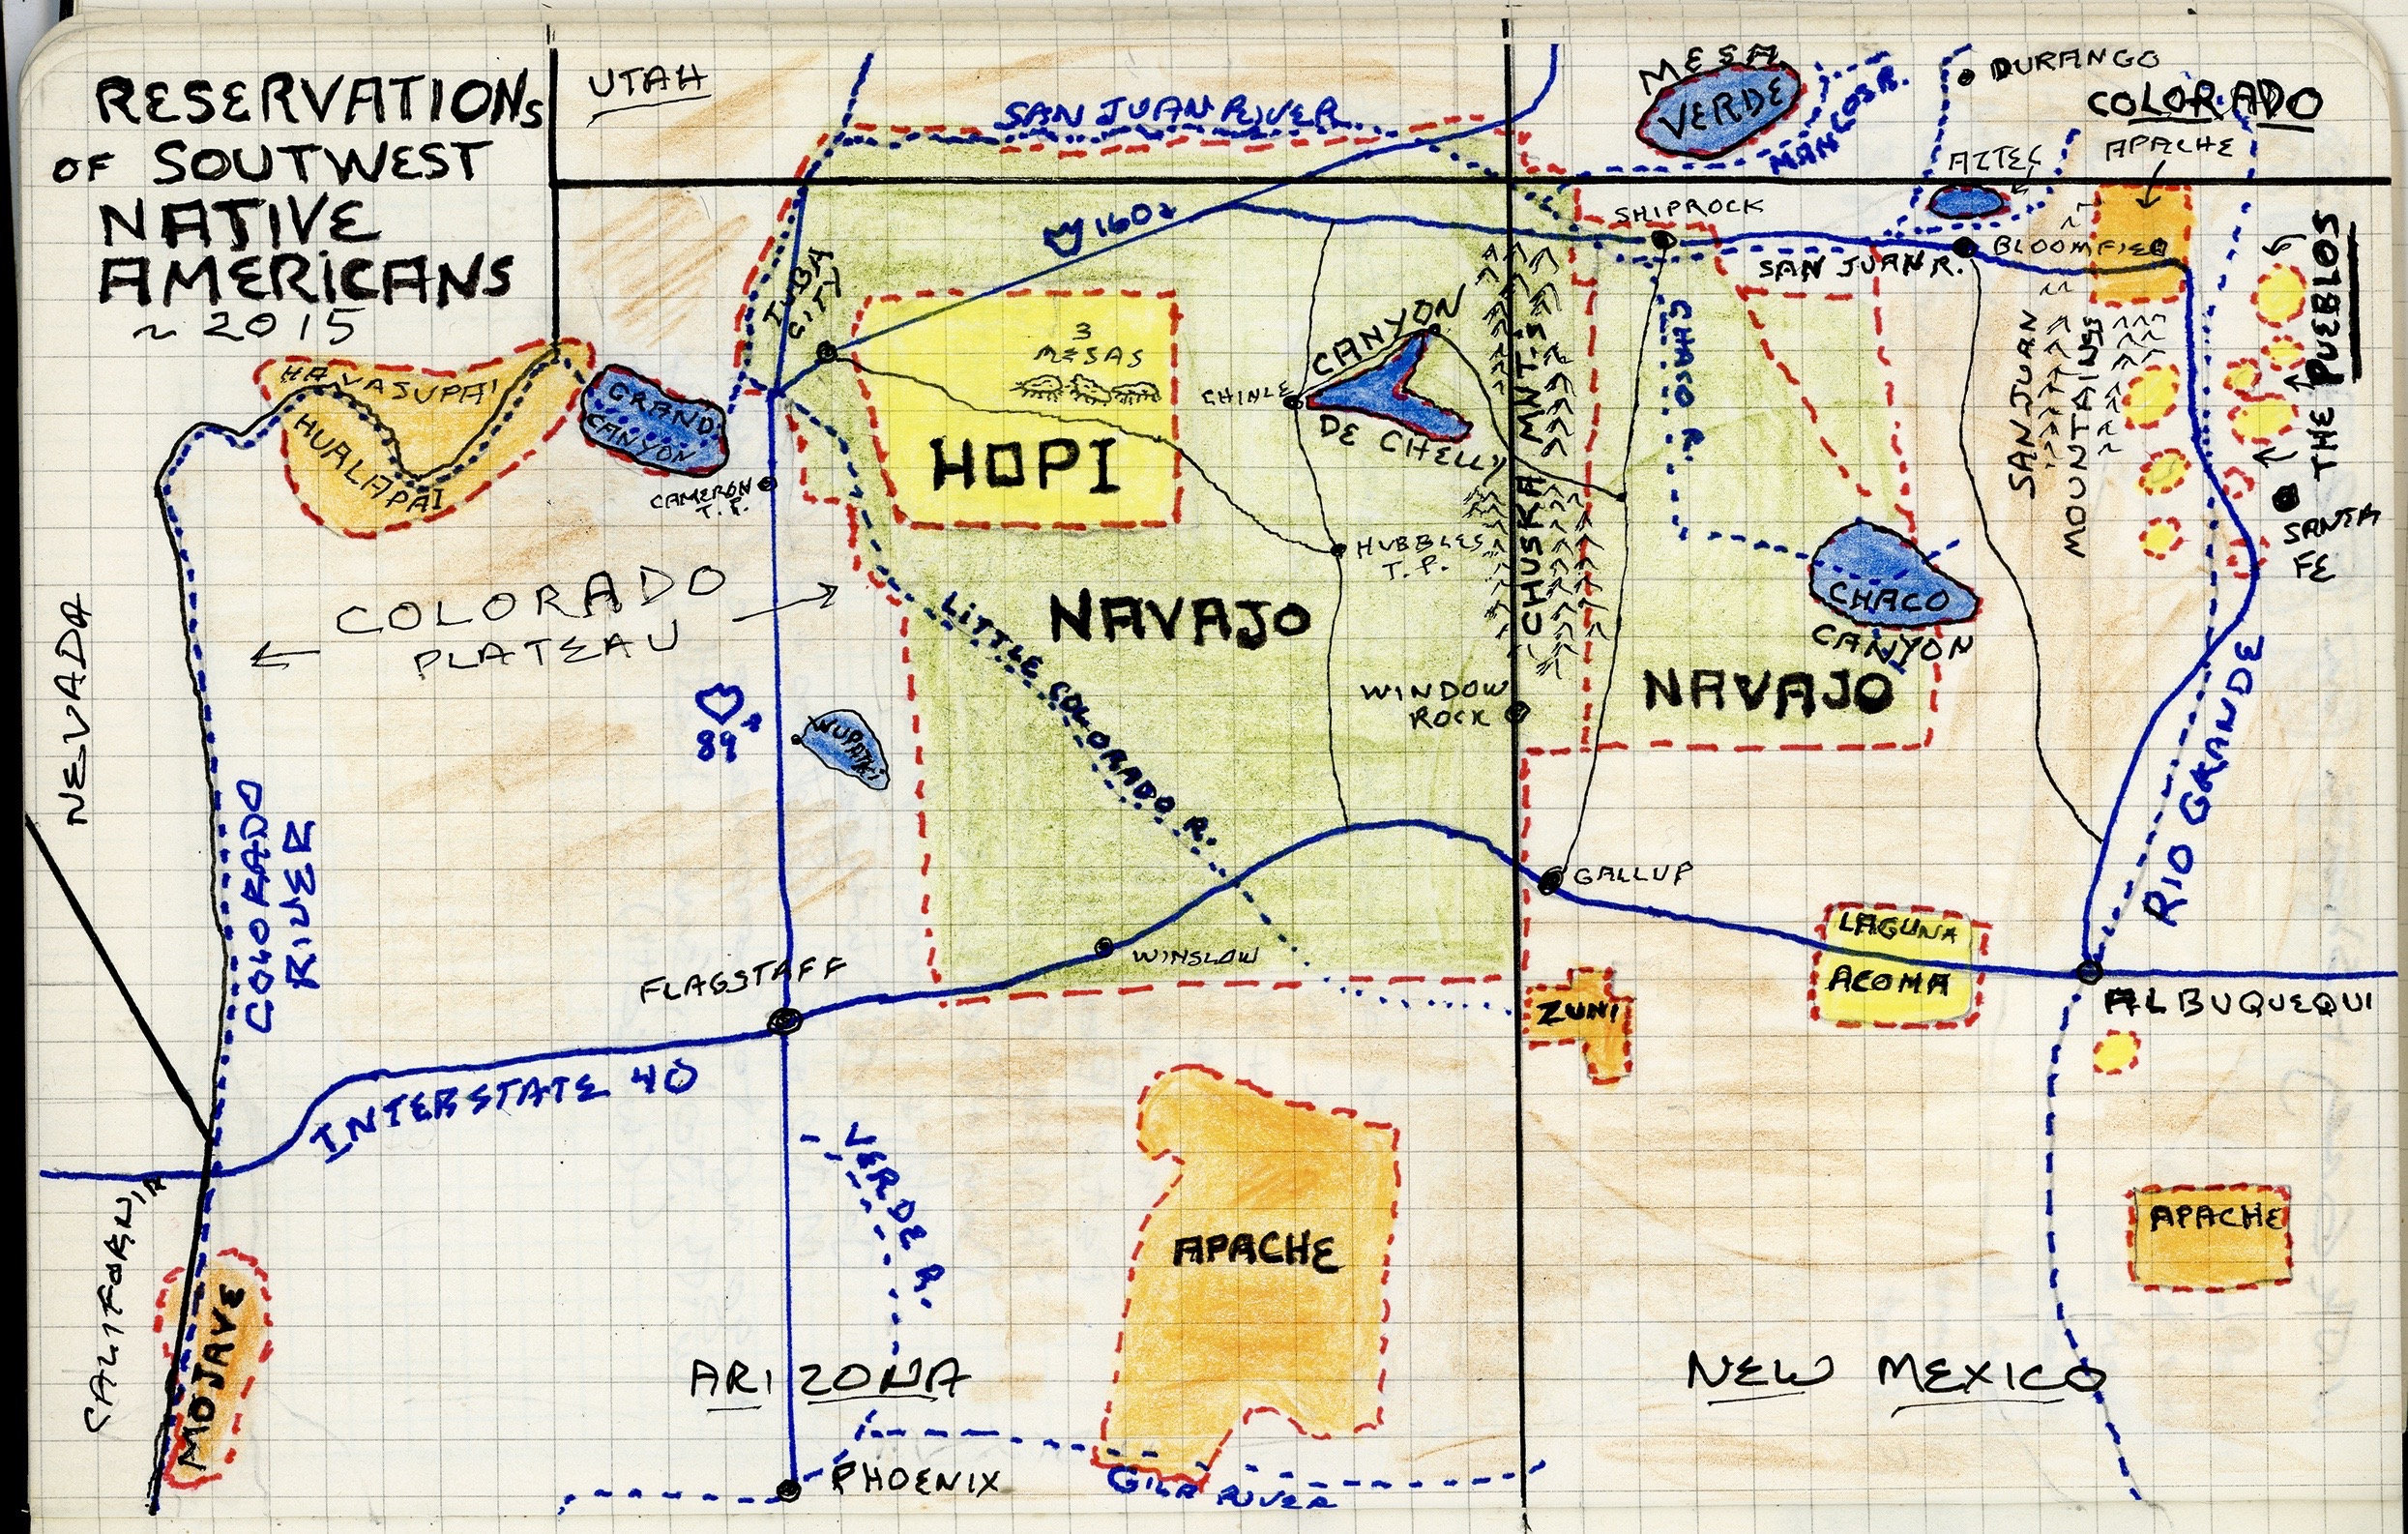 RESERVATIONS
OF SOUTWEST
NATIVE
AMERICANS
~ 2015
UTAH
SAN JUAN RIVER
MESA
VERDE
MANCOS R.
DURANGO
COLORADO
APACHE
AZTEC
SHIPROCK
BLOOMFIELD
SAN JUAN R.
160
TUBA
CITY
3
MESAS
HOPI
CANYON
DE CHELLY
CHINLE
CHUSKA MNT-S
CHACO R.
SAN JUAN
MOUNTAINS
THE PUEBLOS
SANTA
FE
HAVASUPAI
HUALAPAI
GRAND
CANYON
CAMERON
T.P.
HUBBLES
T.P.
CHACO
CANYON
COLORADO
PLATEAU
NAVAJO
NAVAJO
LITTLE COLORADO R.
WINDOW
ROCK
NEVADA
COLORADO
RIVER
89
WUPATKI
RIO GRANDE
GALLUP
LAGUNA
ACOMA
WINSLOW
FLAGSTAFF
ZUNI
ALBUQUEQUI
INTERSTATE 40
VERDE R.
CALIFORNIA
MOJAVE
APACHE
APACHE
ARIZONA
NEW MEXICO
PHOENIX
GILA RIVER